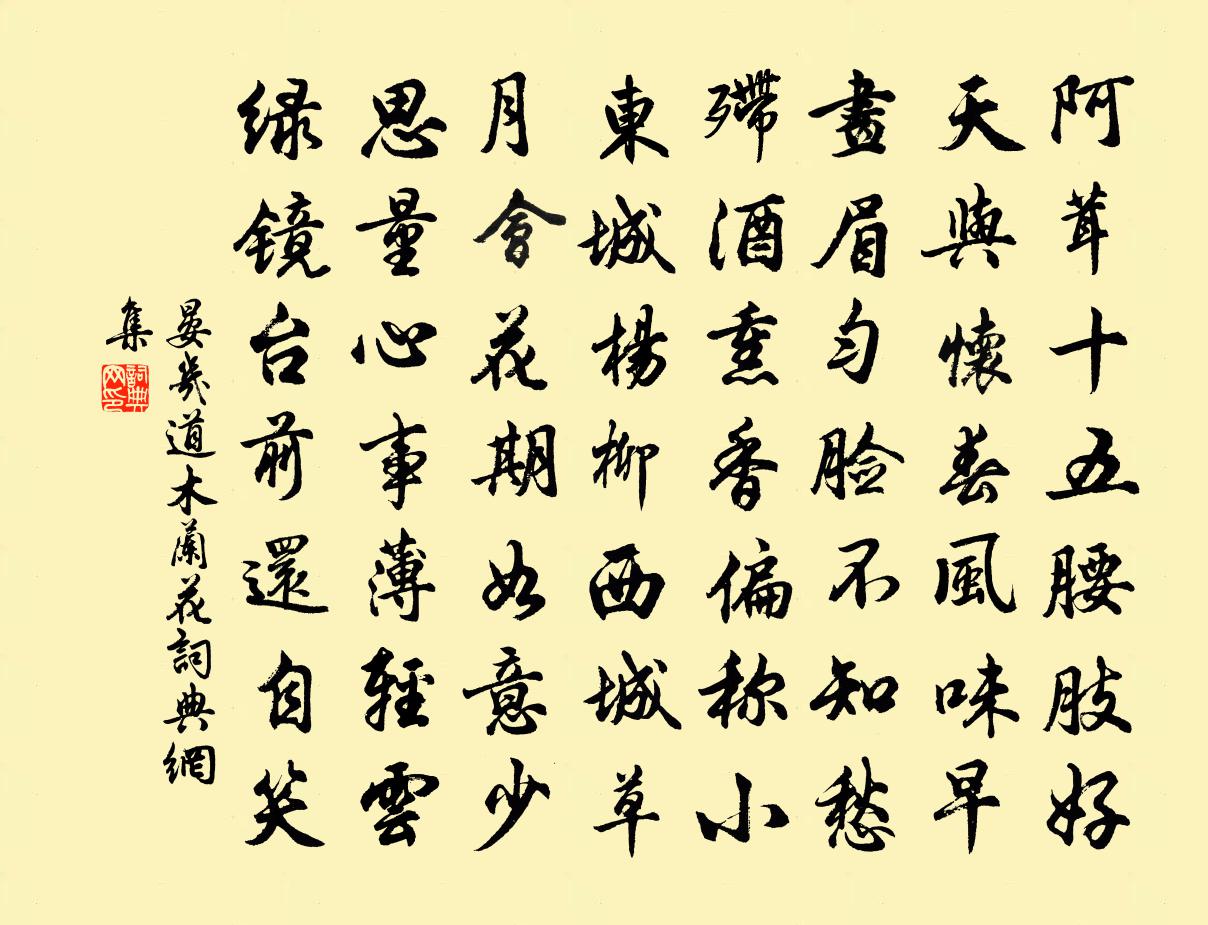 阿茸十五腰肢好
天與懷春風味早
畫眉匀脸不知愁
殢酒熏香偏称小
東城楊柳西城草
月會花期如意少
思量心事薄輕雲
緑镜台前還自笑
晏幾道木蘭花詞典網
集
詞典
网印